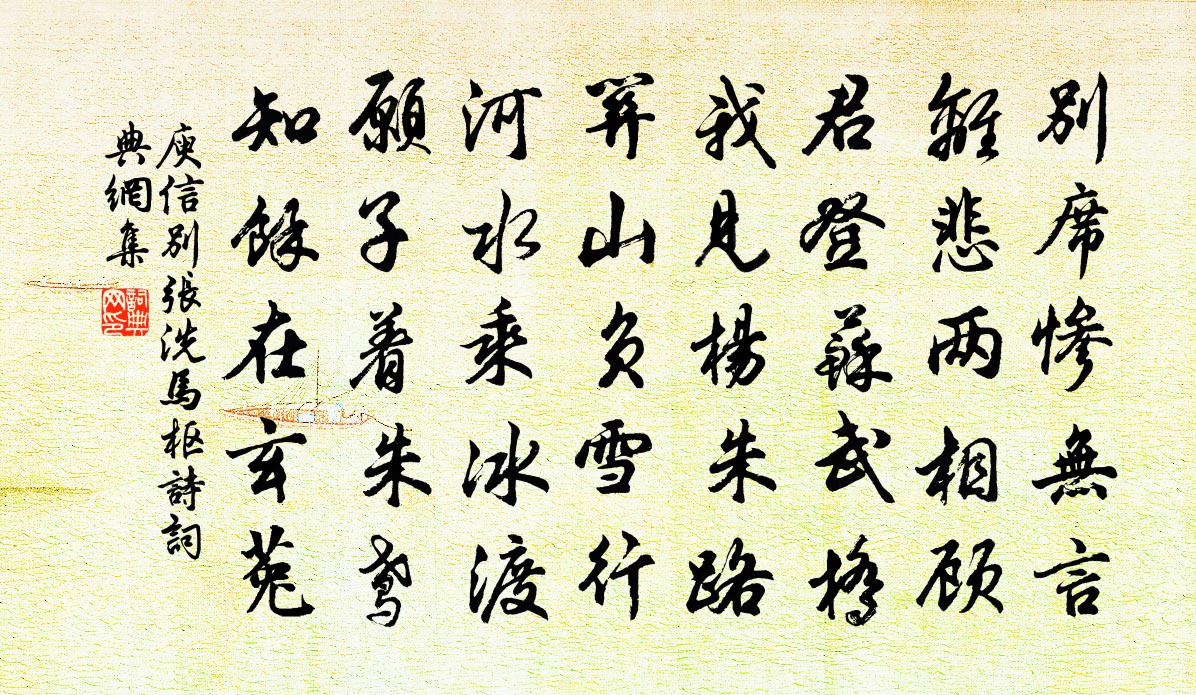 別席慘無言
離悲两相顾
君登蘇武橋
我見楊朱路
關山負雪行
河水乘冰渡
願子着朱鳶
知餘在玄菟
庾信別張洗馬枢詩詞
典網集
詞典
网印